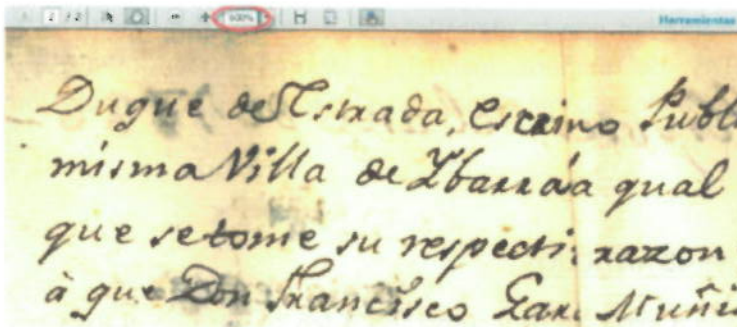 2 / 2 600% Herramientas
Duque de Estrada, Escrivno Publ
misma Villa de Ybarra à qual
que setome su respecti: razon
à que Don Francisco Gar. Muñi